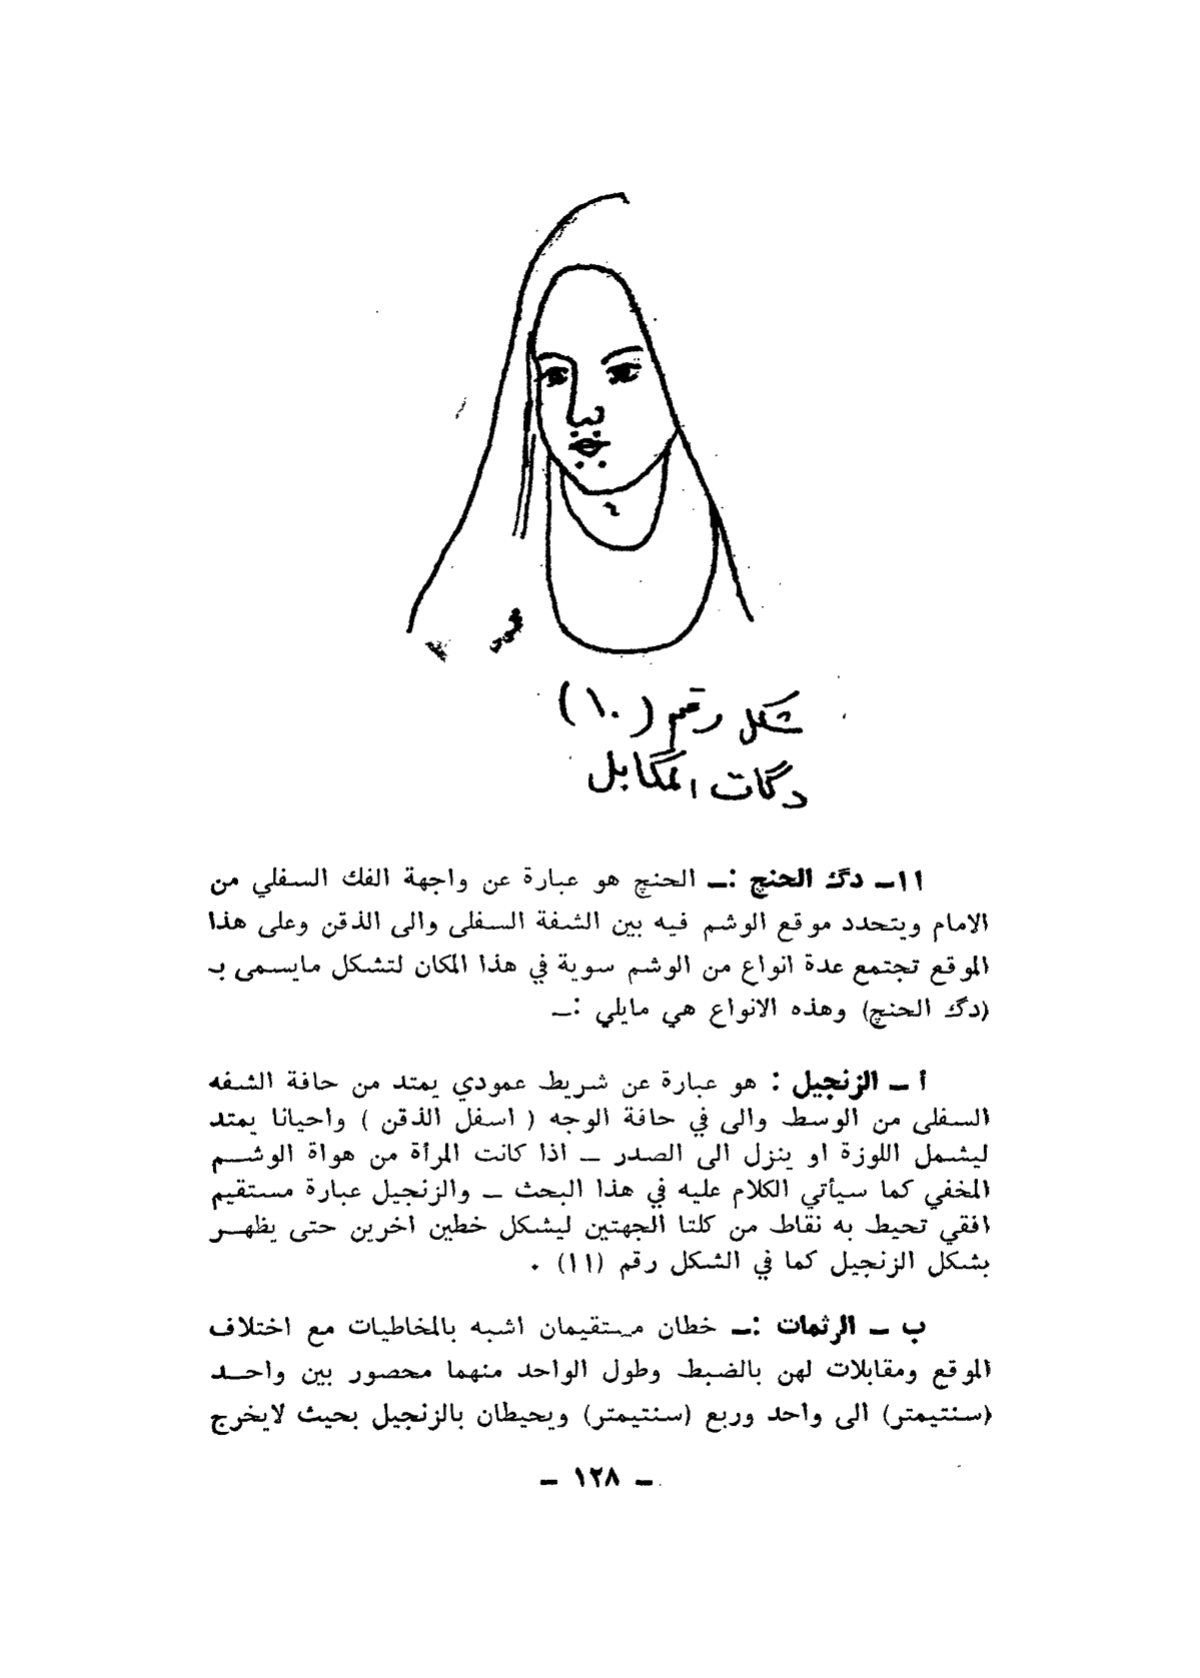 شكل رقم (١٠)
دگات المگابل
١١ــ دگ الحنچ :ــ الحنچ هو عبارة عن واجهة الفك السفلي من
الامام ويتحدد موقع الوشم فيه بين الشفة السفلى والى الذقن وعلى هذا
الموقع تجتمع عدة انواع من الوشم سوية في هذا المكان لتشكل مايسمى بـ
(دگ الحنچ) وهذه الانواع هي مايلي :ــ
أ ــ الزنجيل : هو عبارة عن شريط عمودي يمتد من حافة الشفه
السفلى من الوسط والى في حافة الوجه ( اسفل الذقن ) واحيانا يمتد
ليشمل اللوزة او ينزل الى الصدر ــ اذا كانت المرأة من هواة الوشــم
المخفي كما سيأتي الكلام عليه في هذا البحث ــ والزنجيل عبارة مستقيم
افقي تحيط به نقاط من كلتا الجهتين ليشكل خطين اخرين حتى يظهــر
بشكل الزنجيل كما في الشكل رقم (١١) .
ب ــ الرثمات :ــ خطان مستقيمان اشبه بالمخاطيات مع اختلاف
الموقع ومقابلات لهن بالضبط وطول الواحد منهما محصور بين واحــد
(سنتيمتر) الى واحد وربع (سنتيمتر) ويحيطان بالزنجيل بحيث لايخرج
ــ ١٢٨ ــ